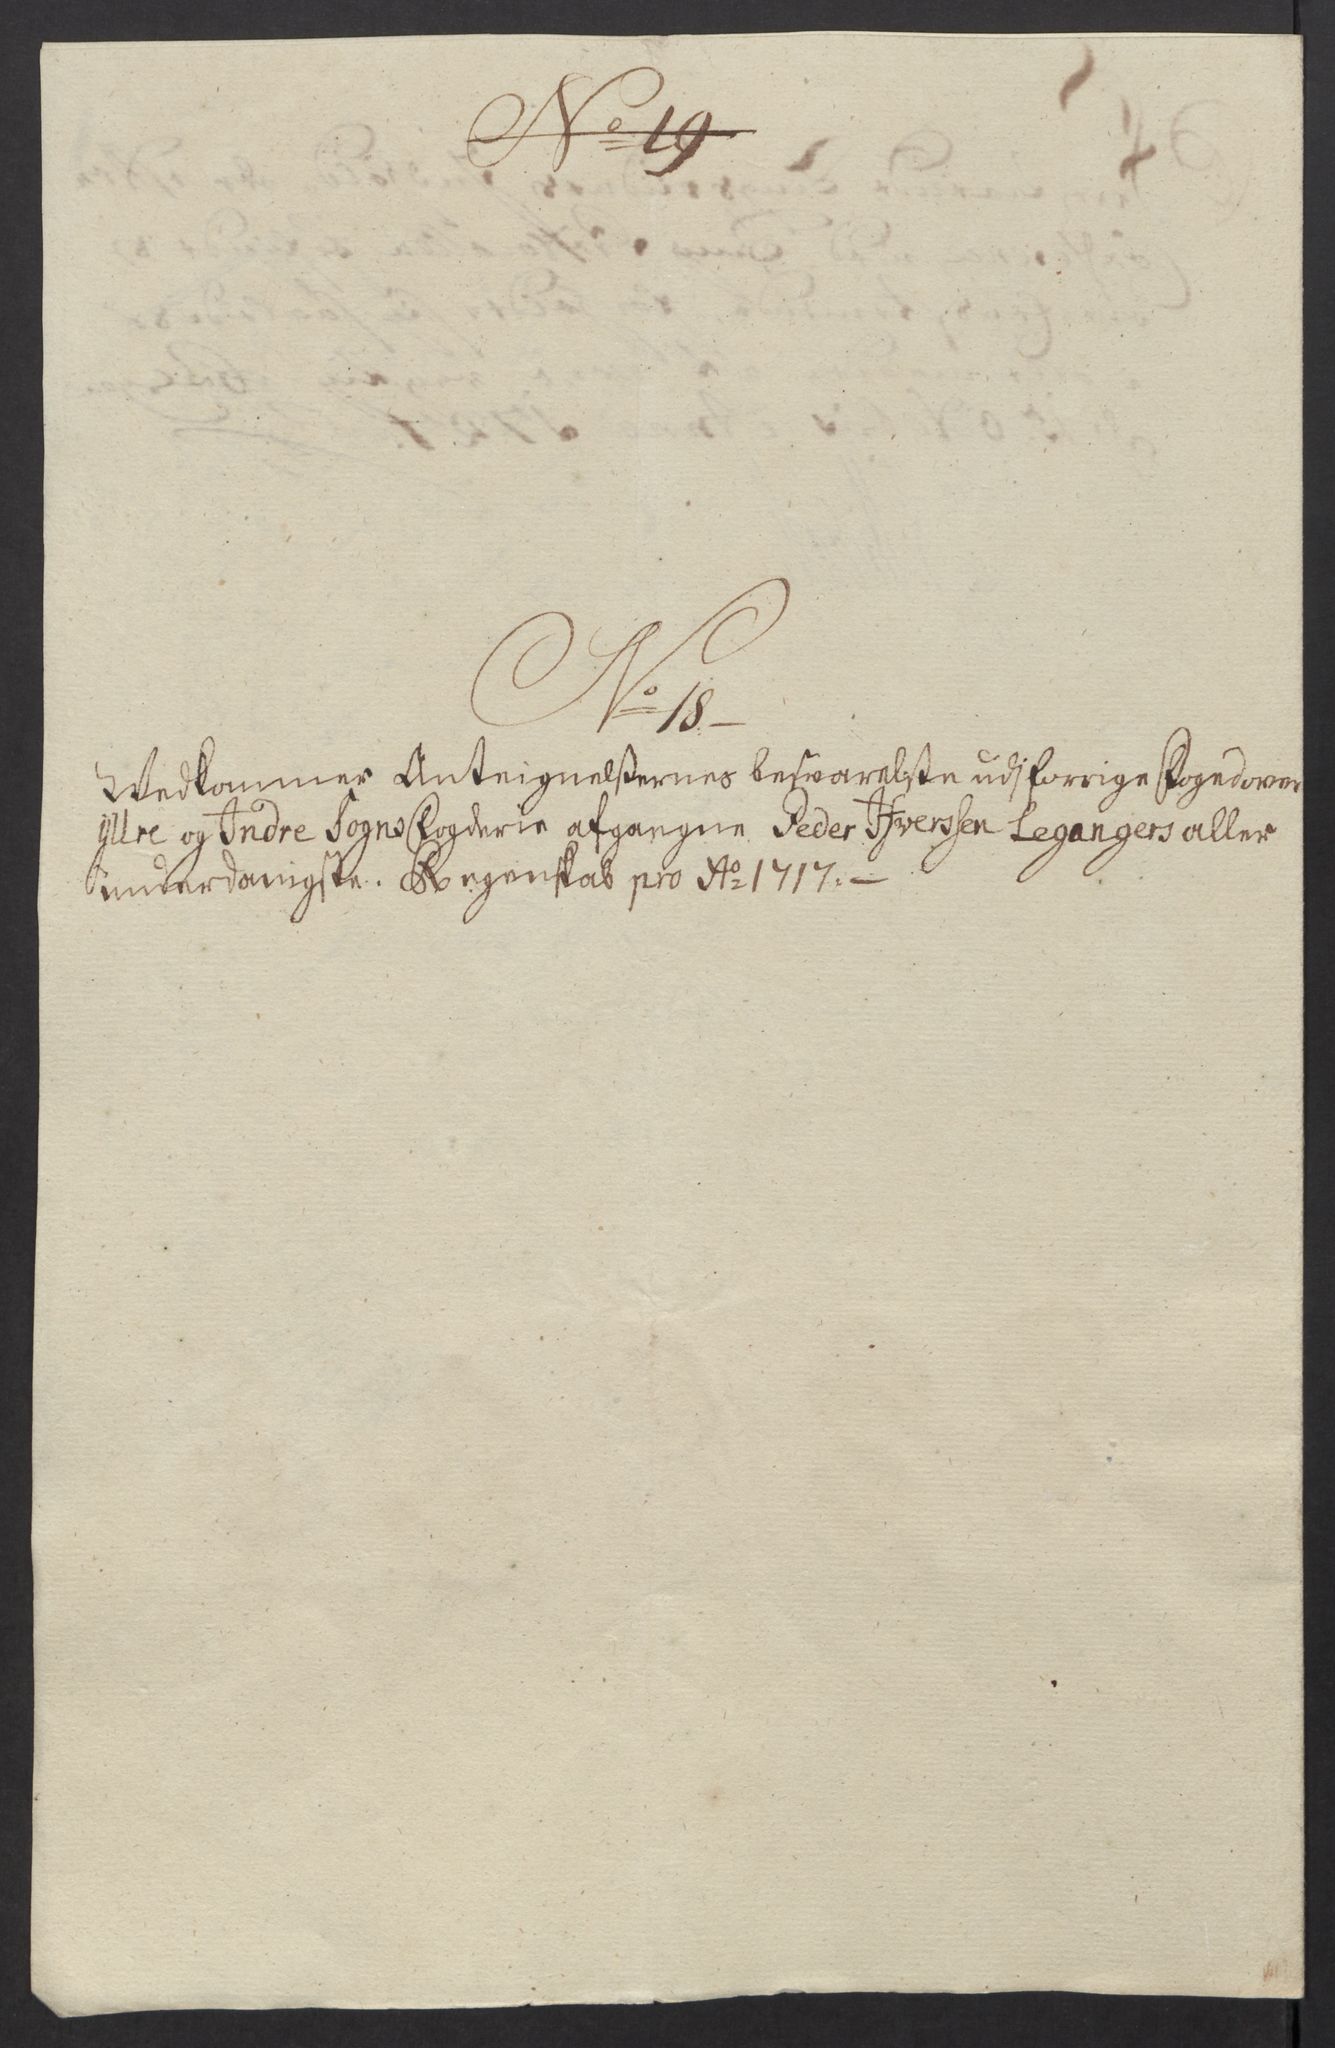 No 19
No 18
Wedkommer Anteignelßernes besvarelße udj forrige Foged over
Yttre og Indre Sogns Fogderie afgangne Peder Iverssen Legangers aller
underdanigste Regenskab pro Ao 1717.